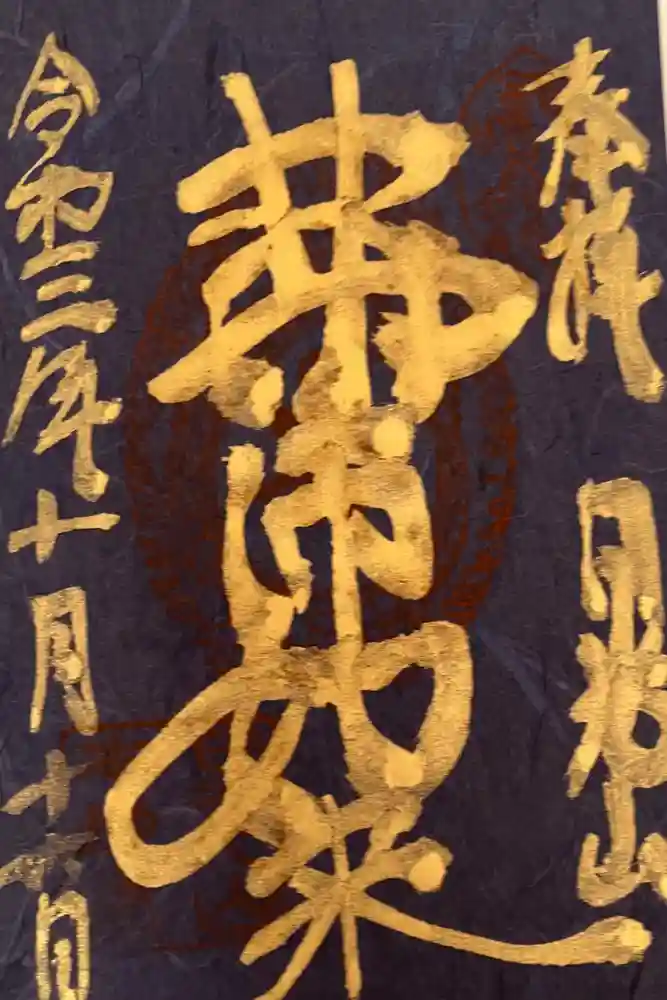 奉拝
薬師如来
令和三年十月十六日